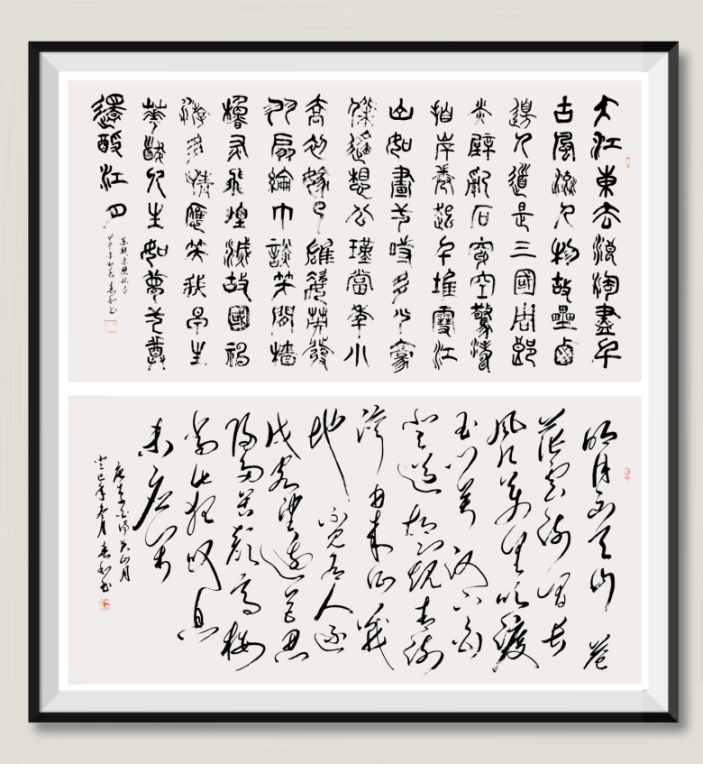 大江東去浪淘盡千
古風流人物故壘西
邊人道是三國周郎
赤壁亂石穿空驚濤
拍岸卷起千堆雪江
山如畫一時多少豪
傑遙想公瑾當年小
喬初嫁了雄姿英發
羽扇綸巾談笑間檣
櫓灰飛煙滅故國神
游多情應笑我早生
華髮人生如夢一尊
還酹江月
明月出天山蒼
茫雲海間長
風幾萬里吹度
玉門關漢下白
登道胡窺青海
灣由來征戰
地不見有人還
戍客望邊色思
歸多苦顏高樓
當此夜嘆息
未應閑
唐李白詩關山月
癸巳年